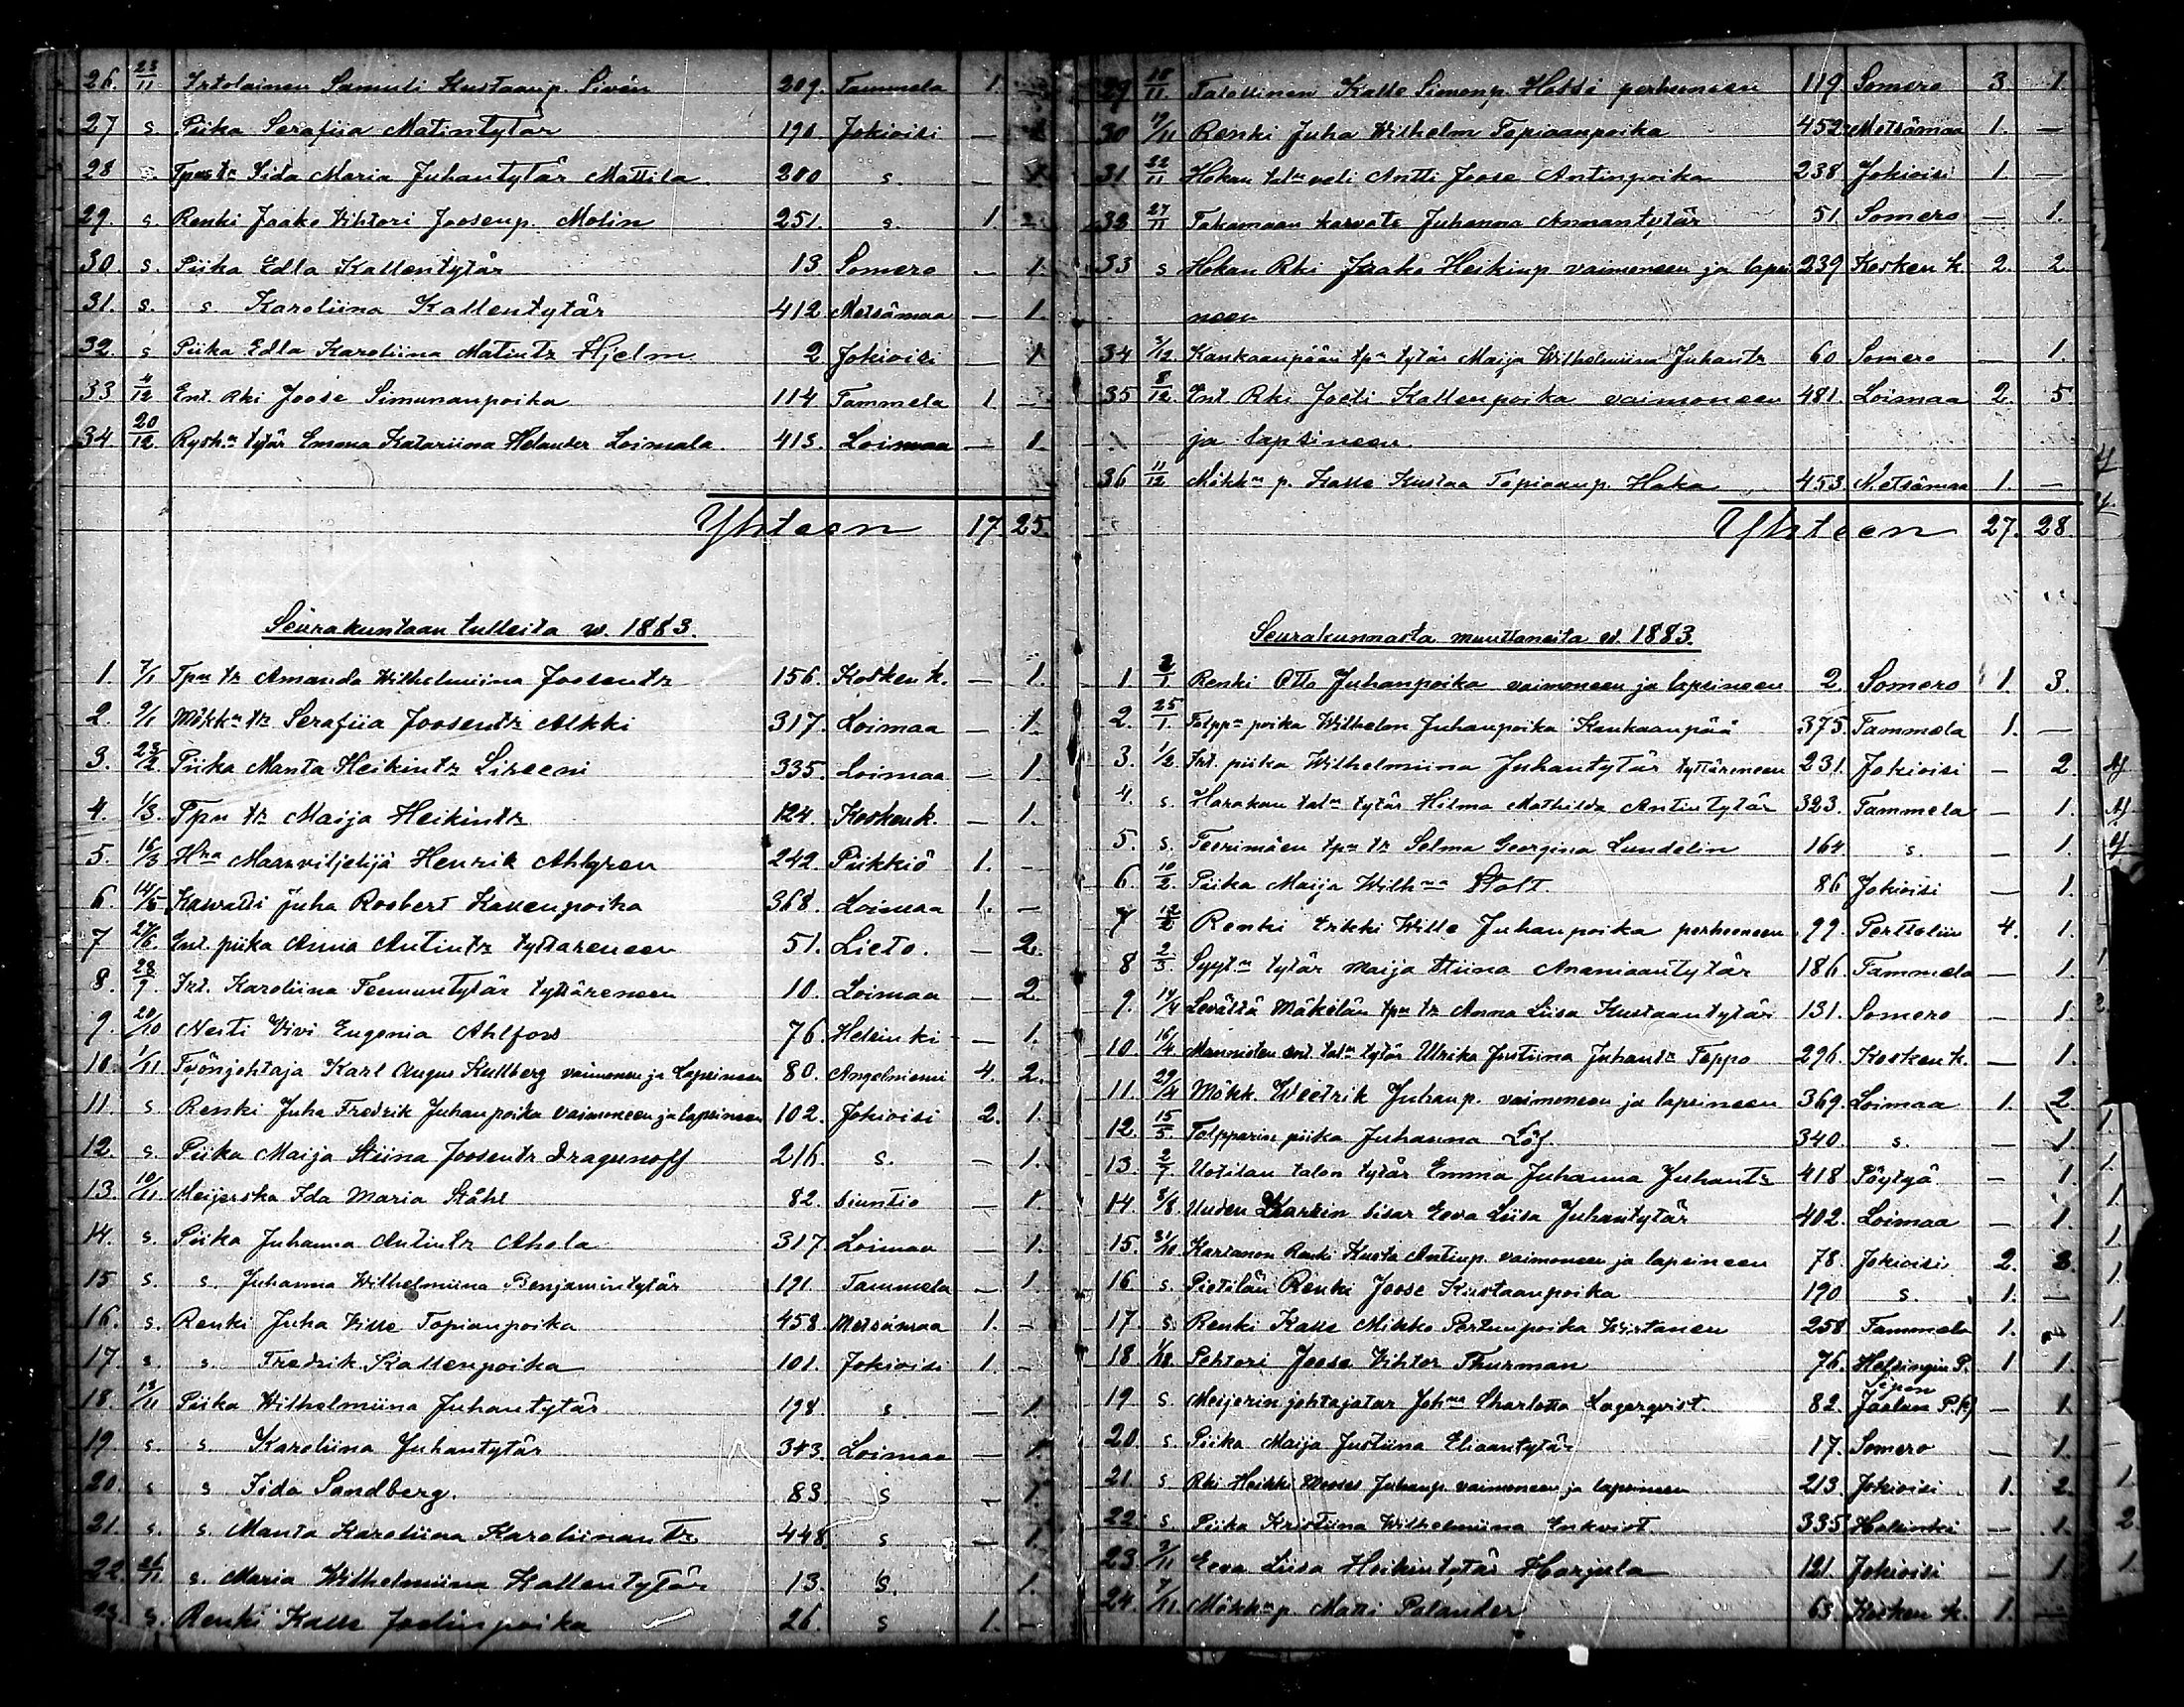 26. 23/11 Irtolainen Samuli Kustaanp. Sivén 209. Tammela 1.
27 s. Piika Serafiia Matintytär 190 Jokioisi —
28 s. Tpn tr Iida Maria Juhantytär Mattila 280 s. — 1.
29. s. Renki Jaako Vihtori Joosenp. Molin 251. s. 1.
30. s. Piika Edla Kallentytär 13 Somero — 1.
31. s. s. Karoliina Kallentytär 412 Metsämaa — 1.
32. s Piika Edla Karoliina Matintr Hjelm 2 Jokioisi — 1
33 4/12 Ent. Rki Joose Simunanpoika 114 Tammela 1. —
34. 20/12 tytär Emma Katariina Helander Loimala 413. Loimaa — 1.
Yhteen 17. 25.
Seurakuntaan tulleita w. 1883.
1. 7/1 Tpn tr Amanda Wilhelmiina Joosentr 156. Kosken k. — 1.
2. 9/1 Mökkn tr Serafiia Joosentr Alkki 317. Loimaa — 1.
3. 23/2 Piika Manta Heikintr Sireeni 335. Loimaa — 1.
4. 1/3. Tpn tr Maija Heikintr 124. Kosken k. — 1.
5. 16/3 Hra Maanviljelijä Henrik Ahlgren 242 Piikkiö 1. —
6. 14/5 Kasvatti Juha Roobert Kallenpoika 368. Loimaa 1. —
7 27/6. Ent. piika Anna Antintr tyttäreneen 51. Lieto. — 2.
8. 28/9. Irt. Karoliina Teemuntytär tyttäreneen 10. Loimaa — 2.
9. 20/10 Neiti Vivi Eugenia Ahlfors 76. Helsinki — 1.
10. 1/11 Työnjohtaja Karl August Kullberg vaimoneen ja lapsineen 80. Angelniemi 4. 2.
11. s. Renki Juha Fredrik Juhanpoika vaimoneen ja lapsineen 102. Jokioisi 2. 1.
12. s. Piika Maija Stiina Joosentr Dragunoff 216. s. — 1.
13. 10/11 Meijerska Ida Maria Ståhl 82. Siuntio — 1.
14. s. Piika Juhanna Antintr Ahola 317 Loimaa — 1.
15 s. s. Juhanna Wilhelmiina Benjamintytär 191. Tammela — 1.
16. s. Renki Juha Kille Topianpoika 458. Metsämaa 1. —
17. s. s. Fredrik Kallenpoika 101. Jokioisi 1. —
18. 13/11 Piika Wilhelmiina Juhantytär 198. s. — 1.
19. s. s. Karoliina Juhantytär 343. Loimaa — 1.
20. s s Iida Sandberg. 83. s — 1.
21. s. s. Manta Karoliina Karoliinan Tr. 448. s — 1.
22. 26/11 s. Maria Wilhelmiina Kallentytär 13. s. 1.
23. s. Renki Kalle Joelinpoika 26. s 1. —
29 18/11. Talollinen Kalle Simonp. Hossi perheeneen 119 Somero 3 1.
30 19/11 Renki Juha Wilhelm Topiaanpoika 452 Metsämaa 1. —
31 22/11 Hokan taln veli Antti Joose Antinpoika 238 Jokioisi 1 —
32 27/11 Takamaan kasvatti Juhanna Annantytär 51. Somero — 1.
33 s Hokan Rki Jaako Heikinp vaimoneen ja lapsi 239 Kosken k. 2. 2
neen
34 3/12. Kankaanpään tpn tytär Maija Wilhelmiina Juhantr 60 Somero — 1.
35 8/12 Ent. Rki Joeli Kallenpoika vaimoneen 481 Loimaa 2. 5.
ja lapsineen.
36 11/12 Mökkn p. Kalle Kustaa Topiaanp. Haka 453 Metsämaa 1. —
Yhteen 27. 28.
Seurakunnasta muuttaneita w. 1883.
1 2/1 Renki Otto Juhanpoika vaimoneen ja lapsineen 2. Somero 1. 3.
2. 25/1. Tolppn poika Wilhelm Juhanpoika Kankaanpää 375. Tammela 1. —
3. 1/2 Irt. piika Wilhelmiina Juhantytär tyttäreneen 231. Jokioisi — 2.
4. s. Harakan taln tytär Hilma Mathilda Antintytär 323. Tammela — 1.
5. s. Teerimäen tpn tr Selma Georgina Lundelin 164. s. — 1.
6. 10/2. Piika Maija Wilhna Stolt. 86 Jokioisi — 1.
7 12/2 Renki Erkki Wille Juhanpoika perheeneen 99. Perttelin 4. 1.
8 2/3. tytär Maija Stiina Ananiaantytär 186. Tammela — 1
9. 14/4 Levältä Mäkilän tpn tr Anna Liisa Kustaantytär 131. Somero — 1.
10. 16/4 Mannisten ent. taln tytär Ulrika Justiina Juhantr Teppo 296. Kosken k. — 1.
11. 29/4 Mökk. Weetrik Juhanp. vaimoneen ja lapsineen 369. Loimaa 1. 2.
12. 15/5. Tolpparin piika Juhanna Löf. 340. s. — 1
13. 2/7. Uotilan talon tytär Emma Juhanna Juhantr 418 Pöytyä. — 1.
14. 3/8. Uuden sisar Eeva Liisa Juhantytär 402. Loimaa — 1.
15. 31/10 Kartanon Renki Kusta Antinp. vaimoneen ja lapsineen 78. Jokioisi 2. 3.
16 s. Pietilän Renki Joose Kustaanpoika 190 s. 1. —
17. s. Renki Kalle Mikko Perttunpoika 258 Tammela 1.
18 1/11. Pehtori Joose Vihtor Thurman 76. Helsingin P. 1 1.
19 s Meijerinjohtajatar Johna Charlotta Lagerqvist 82. P. — 1.
20. s Piika Maija Justiina Eliaantytär 17. Somero — 1.
21. s Rki Heikki Mooses Juhanp vaimoneen ja lapsineen 213. Jokioisi 1. 2.
22. s. Piika Kristiina Wilhelmiina Enkvist. 335 Helsinki — 1.
23. 3/11 Eeva Liisa Heikintytär Harjula 121. Jokioisi — 1
24. 7/11. Mökkn p. Matti Palander 63. Kosken k. 1. —